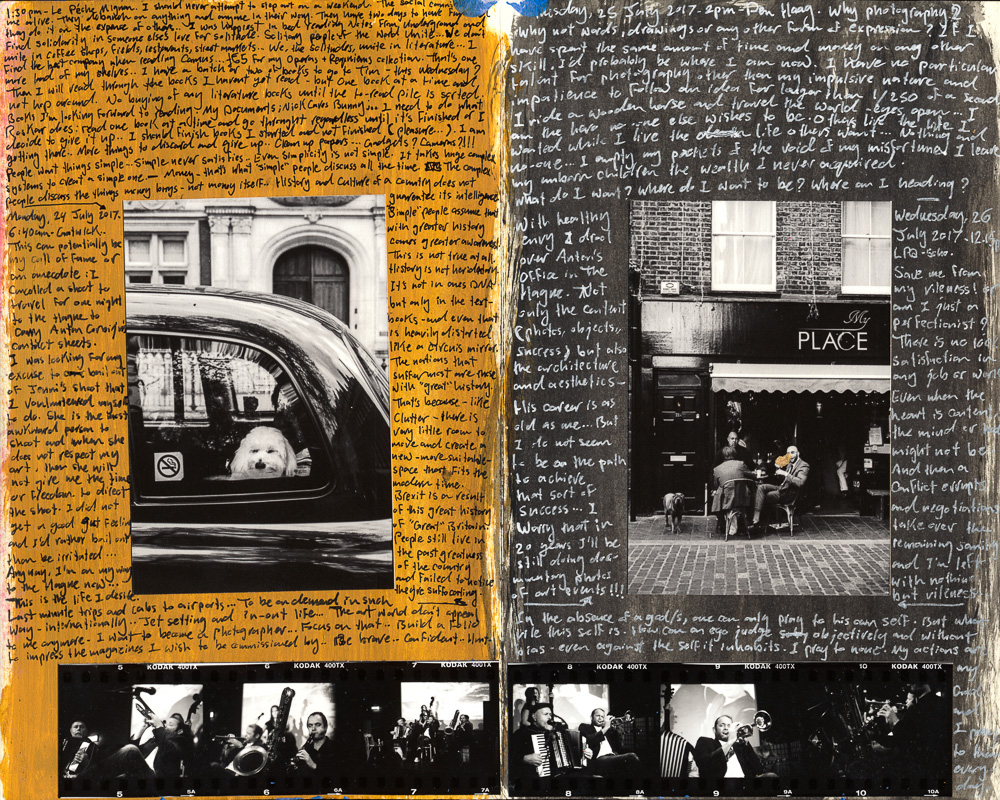 1:30pm - Le Péche Mignon. I should never attempt to step out on a weekend. The social
me alive. They
they do it on the expense of
Find solidarity in Someone else's love for solitude. Solitary people of the World Unite. We don't
unite in coffee shops, Frieze, restaurants, street markets... We, the solitudes, unite in literature... I
Find the best company when reading Camus...
more and of my shelves... I have a batch or two of books to go to Iran this Wednesday.
Then I will read through the books I have not read - but one book at a time and
not hop around. No buying of any literature books until the to-read pile is sorted.
Book I'm looking forward to reading: My Documents; Nick Caves Bunny... I need to do what
Roskar does: read one book at a time and go throught regardless until it's finished or I
decide to give it up. I should finish books I started and not finished (pleasure...). I am
getting there. More things to discard and give up. Clean up papers... Gadgets? Cameras?!!!
People want things simple - Simple never satisfies. Even simplicity is not simple. It takes huge complex
systems to creat a simple one. - Money - that's what "simple" people discuss all the time. The complex
people discuss the things money brings - not money itself. History and Culture of a country does not
guarantee its intelligence.
Monday, 24 July 2017.
6:40am - Gatwick.
This can potentially be
my call of fame or
an anecdote: I
Cancelled a shoot to
travel for one night
to the Hague to
Carry Anton Corbijn's
Contact sheets.
I was looking for any
excuse to bail out
of Jenni's shoot that
I vounluteered myself
to do. She is the most
awkward person to
shoot and when she
does not respect my
art, then she will
not give me the time
or freedom to direct
the shoot. I did not
get a good gut feeling
and I'd rather bail out
than be irritated...
Anyway, I'm on my way
to the Hague now...
This is the life I desire.
"Simple" people assume that
with greater history
comes greater awareness.
This is not true at all.
History is not hereditary.
It's not in ones DNA
but only in the text-
books - and even that
is heavily distorted
like a circus mirror.
The nations that
suffer most are those
with "great" history.
That's because - like
Clutter - there is
very little room to
move and create a
new - more suitable
space that fits the
modern time.
Brexit is a result
of this great history
of "Great" Britain.
People still live in
the past greatness
of the country
and failed to notice
the suffocating
Last minute trips and cabs to airports... To be on demand in such
way - internationally... Jet setting and in-out life... The art world don't appeal
to me anymore. I want to become a photographer... Focus on that... Build a folio
to impress the magazines I wish to be commissioned by... Be brave.. Confident. Hunt
Tuesday, 25 July 2017 - 2pm - Den Haag. Why photography?
Why not words, drawings or any other form of expression? If I
have spent the same amount of time and money on any other
skill I'd probably be where I am now. I have no particular
talent for photography other than my impulsive nature and
impatience to follow an idea for larger than 1/250 of a second
I ride a wooden horse and travel the world - eyes open... I
am the hero no one else wishes to be. Others live the life I
wanted while I live the life others want... Nothing and
no-one... I empty my pockets of the void of my misfortune. I leave
my unborn children the wealth I never acquired.
What do I want? where do I want to be? Where am I heading?
With healthy
envy I drool
over Anton's
office in The
Hague. Not
only the content
(photos, objects,
success) but also
the architecture
and aesthetics -
His career is as
old as me... But
I do not seem
to be on the path
to achieve
that sort of
success... I
Worry that in
20 years I'll be
still doing doc-
umentary photos
of art events!!!
Wednesday, 26
July 2017 - 12.
LPA - Soho.
Save me from
my vileness! or
am I just a
perfectionist?
There is no 100
Satisfaction in
any job or work
Even when the
heart is content
the mind or
might not be
And then a
Conflict erupts
and negotiations
take over the
remaining sanity
and I'm left
with nothing
but vileness.
In the absence of a god/s, one can only pray to his own self. But what
vile this self is. How can an ego judge objectively and without
bias - even against the self it inhabits. I pray to none. My actions are
my
My
PLACE
5 KODAK 400TX 6 7 KODAK 400TX
8 KODAK 400TX 9 10 KODAK 400TX
5 6 6A 7 7A
8 8A 9 9A 10 10A